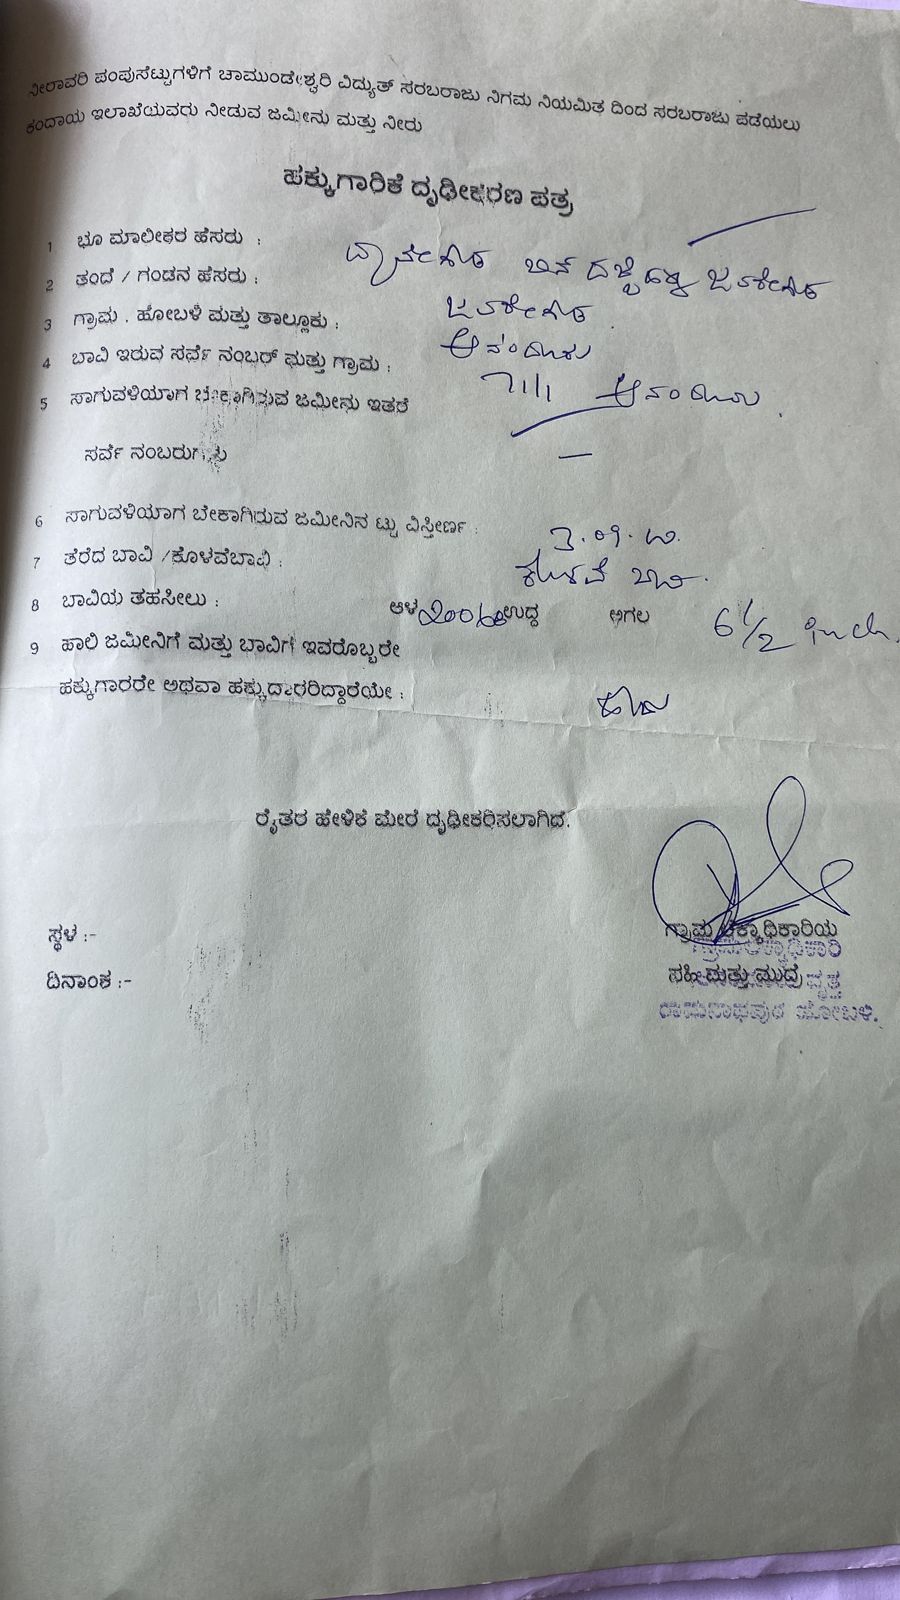 ನೀರಾವರಿ ಪಂಪುಸೆಟ್ಟುಗಳಿಗೆ ಚಾಮುಂಡೇಶ್ವರಿ ವಿದ್ಯುತ್ ಸರಬರಾಜು ನಿಗಮ ನಿಯಮಿತ ದಿಂದ ಸರಬರಾಜು ಪಡೆಯಲು
ಕಂದಾಯ ಇಲಾಖೆಯವರು ನೀಡುವ ಜಮೀನು ಮತ್ತು ನೀರು
ಹಕ್ಕುಗಾರಿಕೆ ದೃಢೀಕರಣ ಪತ್ರ
1 ಭೂ ಮಾಲೀಕರ ಹೆಸರು :
2 ತಂದೆ / ಗಂಡನ ಹೆಸರು :
3 ಗ್ರಾಮ . ಹೋಬಳಿ ಮತ್ತು ತಾಲ್ಲೂಕು :
4 ಬಾವಿ ಇರುವ ಸರ್ವೆ ನಂಬರ್ ಮತ್ತು ಗ್ರಾಮ : 71/1
5 ಸಾಗುವಳಿಯಾಗ ಬೇಕಾಗಿರುವ ಜಮೀನು ಇತರೆ
ಸರ್ವೆ ನಂಬರುಗಳು —
6 ಸಾಗುವಳಿಯಾಗ ಬೇಕಾಗಿರುವ ಜಮೀನಿನ ಟ್ಟು ವಿಸ್ತೀರ್ಣ :
7 ತೆರೆದ ಬಾವಿ /ಕೊಳವೆಬಾವಿ : ಕೊಳವೆ ಬಾವಿ.
8 ಬಾವಿಯ ತಹಸೀಲು : ಆಳ ಉದ್ದ ಅಗಲ 6 1/2 inch.
9 ಹಾಲಿ ಜಮೀನಿಗೆ ಮತ್ತು ಬಾವಿಗೆ ಇವರೊಬ್ಬರೇ
ಹಕ್ಕುಗಾರರೇ ಅಥವಾ ಹಕ್ಕುದಾರರಿದ್ದಾರೆಯೇ : ಹೌದು
ರೈತರ ಹೇಳಿಕೆ ಮೇರೆ ದೃಢೀಕರಿಸಲಾಗಿದೆ.
ಸ್ಥಳ :-
ಗ್ರಾಮ ಲೆಕ್ಕಾಧಿಕಾರಿಯ
ಗ್ರಾಮಲೆಕ್ಕಾಧಿಕಾರಿ
ದಿನಾಂಕ :-
ಸಹಿ ಮತ್ತು ಮುದ್ರೆ
ವೃತ್ತ
ರಾಮನಾಥಪುರ ಹೋಬಳಿ.